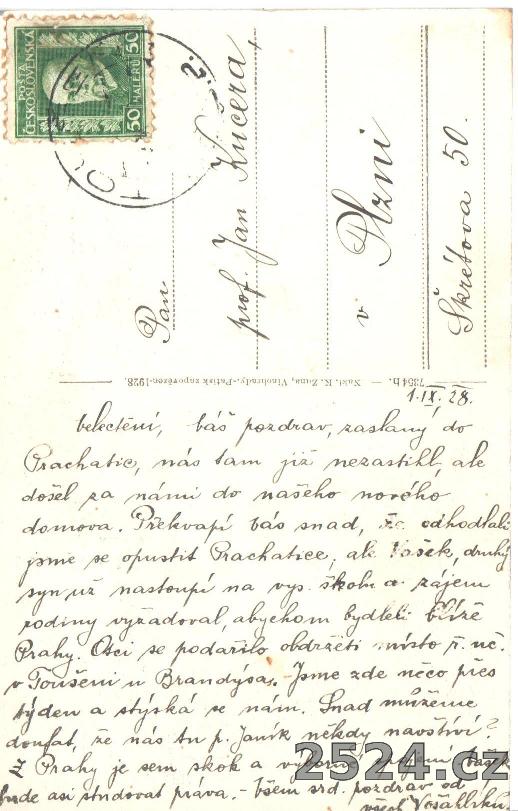 POŠTA
ČESKOSLOVENSKÁ
50 HALÉŘŮ 50
Pan
prof. Jan Kučera,
v Plzni
Škrétova 50.
7354 h. — Nakl. K. Zuna, Vinohrady.-Patisk zapovězen-1928.
1.IX.28.
Velectění, Váš pozdrav, zaslaný do
Prachatic, nás tam již nezastihl, ale
došel za námi do našeho nového
domova. Překvapí Vás snad, že odhodlali
jsme se opustit Prachatice, ale Vašek, druhý
syn už nastoupí na vys. školu a zájem
rodiny vyžadoval, abychom bydleli blíže
Prahy. Otci se podařilo obdržeti místo ř. uč.
v Toušeni u Brandýsa. - Jsme zde něco přes
týden a stýská se nám. Snad můžeme
doufat, že nás tu p. Janík někdy navštíví?
Z Prahy je sem skok a výborné spojení. Vašek
bude asi studovat práva. - Všem srd. pozdrav od
všech
2524.cz